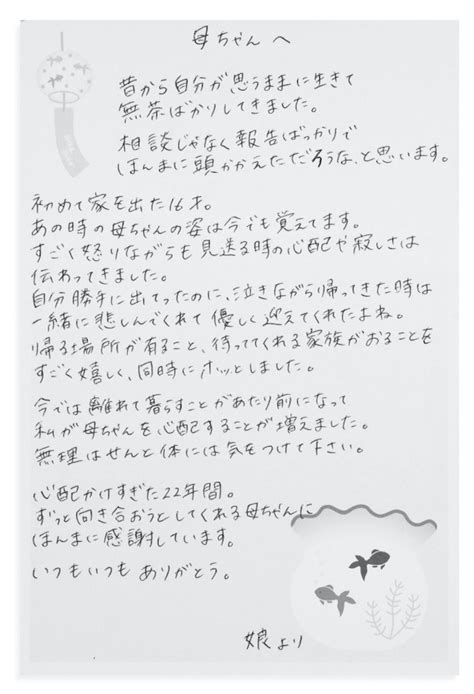 母ちゃんへ
昔から自分が思うままに生きて
無茶ばかりしてきました。
相談じゃなく報告ばっかりで
ほんまに頭かかえただろうな、と思います。
初めて家を出た16才。
あの時の母ちゃんの姿は今でも覚えてます。
すごく怒りながらも見送る時の心配や寂しさは
伝わってきました。
自分勝手に出てったのに、泣きながら帰ってきた時は
一緒に悲しんでくれて優しく迎えてくれたよね。
帰る場所が有ること、待っててくれる家族がおることを
すごく嬉しく、同時にホッとしました。
今では離れて暮らすことがあたり前になって
私が母ちゃんを心配することが増えました。
無理はせんと体には気をつけて下さい。
心配かけすぎた22年間。
ずっと向き合おうとしてくれる母ちゃんに
ほんまに感謝しています。
いつもいつもありがとう。
娘より